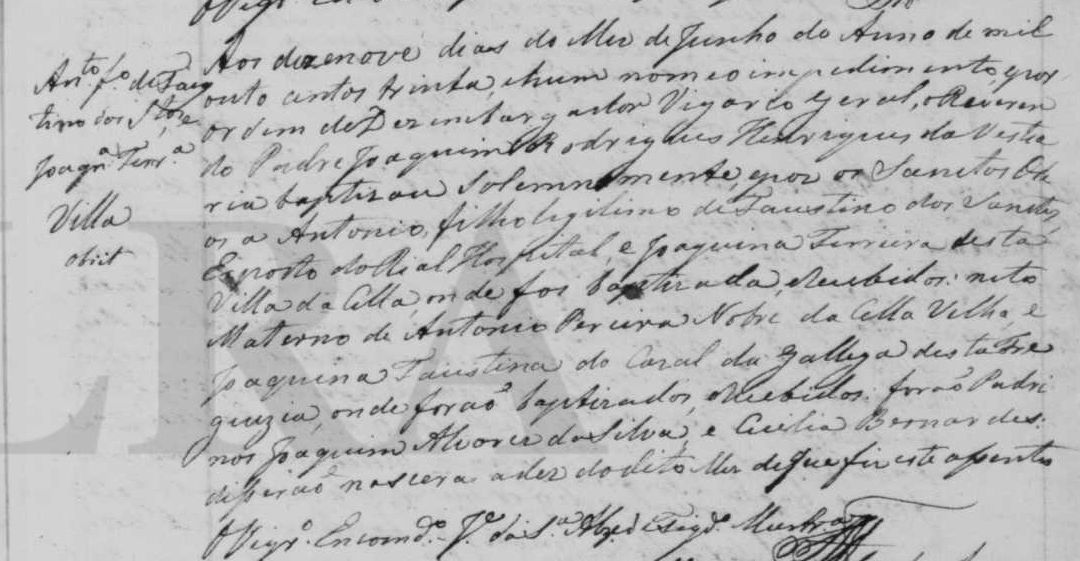 Anto. fo. de Faus
tino dos Stos, e
Joaqna. Ferra.
Villa
obiit
Aos dezenove dias do Mez de Junho do Anno de mil
outo centos trinta, e hum no meo impedimento, e por
ordem do Dezembargador Vigario Geral, o Reveren
do Padre Joaquim Rodrigues Henriques da Vestia
ria baptizou solemnemente, e poz os Sanctos Ole
os a Antonio, filho legitimo de Faustino dos Sanctos,
Exposto do Real Hospital, e Joaquina Ferreira desta
Villa da Cella, onde foi baptizada, e Recebidos: neto
Materno de Antonio Pereira Nobre da Cella Velha, e
Joaquina Faustina do Cazal da Gallega desta Fre
guezia, onde foraõ baptizados, e Recebidos: foraõ Padri
nos Joaquim Alvares da Silva, e Cecilia Bernardes:
disseraõ nascera a dez do dito Mez de que fiz este assento
O Vigro. Encomdo. Je. da Sa.
LRA